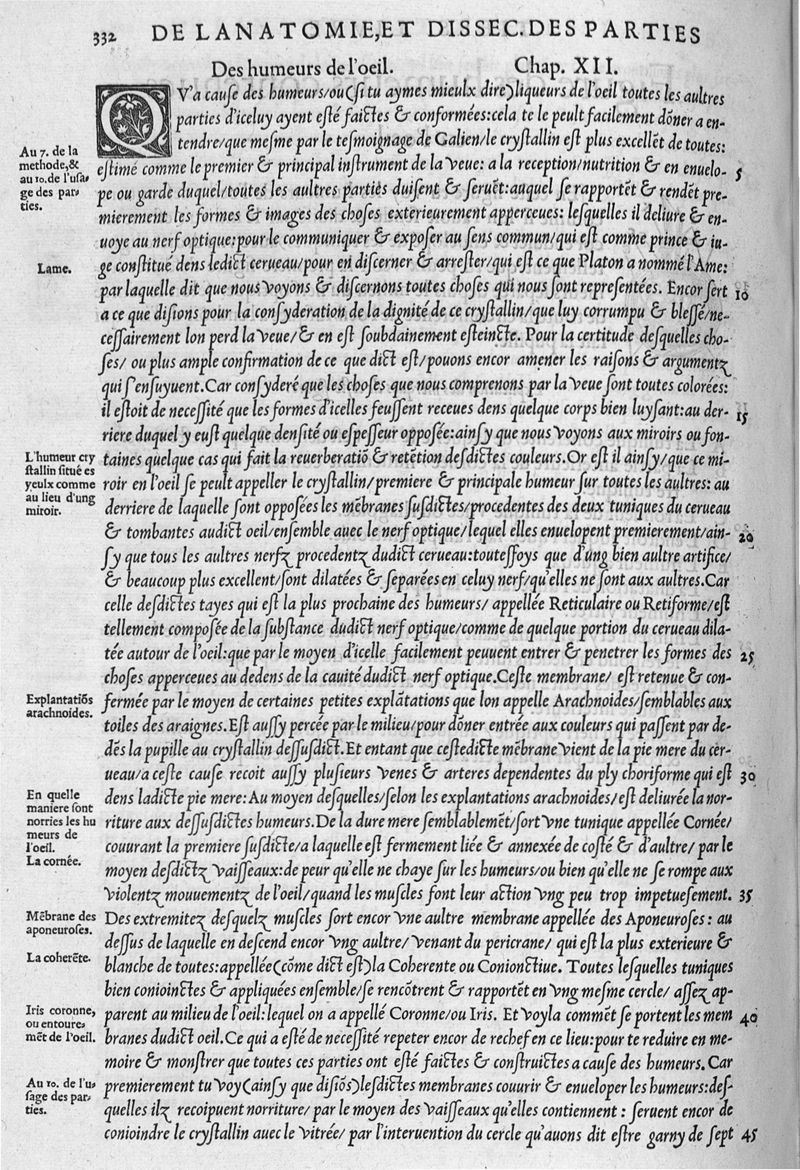 332 DE LANATOMIE, ET DISSEC. DES PARTIES
Des humeurs de l'oeil. Chap. XII.
QV'a cause des humeurs/ou(si tu aymes mieulx dire)liqueurs de l'oeil toutes les aultres
parties d'iceluy ayent esté faictes & conformées:cela te le peult facilement dōner a en-
tendre/que mesme par le tesmoignage de Galien/le crystallin est plus excellēt de toutes:
Au 7. de la
methode,&
au 10. de l'usa-
ge des par-
ties.
estimé comme le premier & principal instrument de la veue: a la reception/nutrition & en euuelo- 5
pe ou garde duquel/toutes les aultres partiẽs duisent & seruēt:auquel se rapportēt & rendēt pre-
mierement les formes & images des choses exterieurement apperceues: lesquelles il deliure & en-
uoye au nerf optique:pour le communiquer & exposer au sens commun/qui est comme prince & iu-
Lame.
ge constitué dens ledict cerueau/pour en discerner & arrester/qui est ce que Platon a nommé l'Ame:
par laquelle dit que nous voyons & discernons toutes choses qui nous sont representées. Encor sert 10
a ce que disions pour la consyderation de la dignité de ce crystallin/que luy corrumpu & blessé/ne-
cessairement lon perd la veue/& en est soubdainement esteincte. Pour la certitude desquelles cho-
ses/ ou plus ample confirmation de ce que dict est/pouons encor amener les raisons & argumentz
qui s'ensuyuent.Car consyderé que les choses que nous comprenons par la veue sont toutes colorées:
il estoit de necessité que les formes d'icelles feussent receues dens quelque corps bien luysant:au der- 15
riere duquel y eust quelque densité ou espesseur opposée:ainsy que nous voyons aux miroirs ou fon-
L'humeur cry
stallin situé es
yeulx comme
au lieu d'ung
miroir.
taines quelque cas qui fait la reuerberatiō & retētion desdictes couleurs.Or est il ainsy/que ce mi-
roir en l'oeil se peult appeller le crystallin/premiere & principale humeur sur toutes les aultres: au
derriere de laquelle sont opposées les mēbranes susdictes/procedentes des deux tuniques du cerueau
& tombantes audict oeil/ensemble auec le nerf optique/lequel elles enuelopent premierement/ain- 20
sy que tous les aultres nerfz procedentz dudict cerueau:toutesfoys que d'ung bien aultre artifice/
& beaucoup plus excellent/sont dilatées & separées en celuy nerf/qu'elles ne sont aux aultres.Car
celle desdictes tayes qui est la plus prochaine des humeurs/ appellée Reticulaire ou Retiforme/est
tellement composée de la substance dudict nerf optique/comme de quelque portion du cerueau dila-
tée autour de l'oeil:que par le moyen d'icelle facilement peuuent entrer & penetrer les formes des 25
choses apperceues au dedens de la cauité dudict nerf optique.Ceste membrane/ est retenue & con-
Explantatiōs
arachnoides.
fermée par le moyen de certaines petites explātations que lon appelle Arachnoides/semblables aux
toiles des araignes.Est aussy percée par le milieu/pour dōner entrée aux couleurs qui passent par de-
dēs la pupille au crystallin dessusdict.Et entant que cestedicte mēbrane vient de la pie mere du cer-
ueau/a ceste cause recoit aussy plusieurs venes & arteres dependentes du ply choriforme qui est 30
En quelle
maniere sont
norries les hu
meurs de
l'oeil.
dens ladicte pie mere:Au moyen desquelles/selon les explantations arachnoides/est deliurée la nor-
riture aux dessusdictes humeurs.De la dure mere semblablemēt/sort vne tunique appellée Cornée/
La cornée.
couurant la premiere susdicte/a laquelle est fermement liée & annexée de costé & d'aultre/ par le
moyen desdictz vaisseaux:de peur qu'elle ne chaye sur les humeurs/ou bien qu'elle ne se rompe aux
violentz mouuementz de l'oeil/quand les muscles font leur action vng peu trop impetuesement. 35
Mēbrane des
aponeuroses.
Des extremitez desquelz muscles sort encor vne aultre membrane appellée des Aponeuroses: au
dessus de laquelle en descend encor vng aultre/ venant du pericrane/ qui est la plus exterieure &
La coherēte.
blanche de toutes:appellée(cōme dict est)la Coherente ou Conionctiue. Toutes lesquelles tuniques
bien conioinctes & appliquées ensemble/se rencōtrent & rapportēt en vng mesme cercle/ assez ap-
Iris coronne,
ou entoure-
mēt de l'oeil.
parent au milieu de l'oeil:lequel on a appellé Coronne/ou Iris. Et voyla commēt se portent les mem 40
branes dudict oeil.Ce qui a esté de necessité repeter encor de rechef en ce lieu:pour te reduire en me-
moire & monstrer que toutes ces parties ont esté faictes & construictes a cause des humeurs. Car
Au 10. de l'u-
sage des par-
ties.
premierement tu voy(ainsy que disiōs)lesdictes membranes couurir & enueloper les humeurs:des-
quelles ilz recoipuent norriture/ par le moyen des vaisseaux qu'elles contiennent : seruent encor de
conioindre le crystallin auec le vitrée/ par l'interuention du cercle qu'auons dit estre garny de sept 45